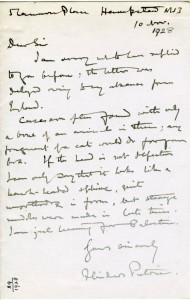 Cannon Place Hampstead NW3
10 Nov. 1928
Dear Sir
I am sorry not to have replied
to you before; the letter was
delayed owing to my absence from
England.
Cases are often found with only
a bone of an animal in them; any
fragment of cat would do for a
box. If the head is not defective
I can only say that it looks like a
hawk-headed sphinx, quite
in form, but strange
were made in late times.
I am just leaving for Palestine
Yours sincerely
Flinders Petrie
1928